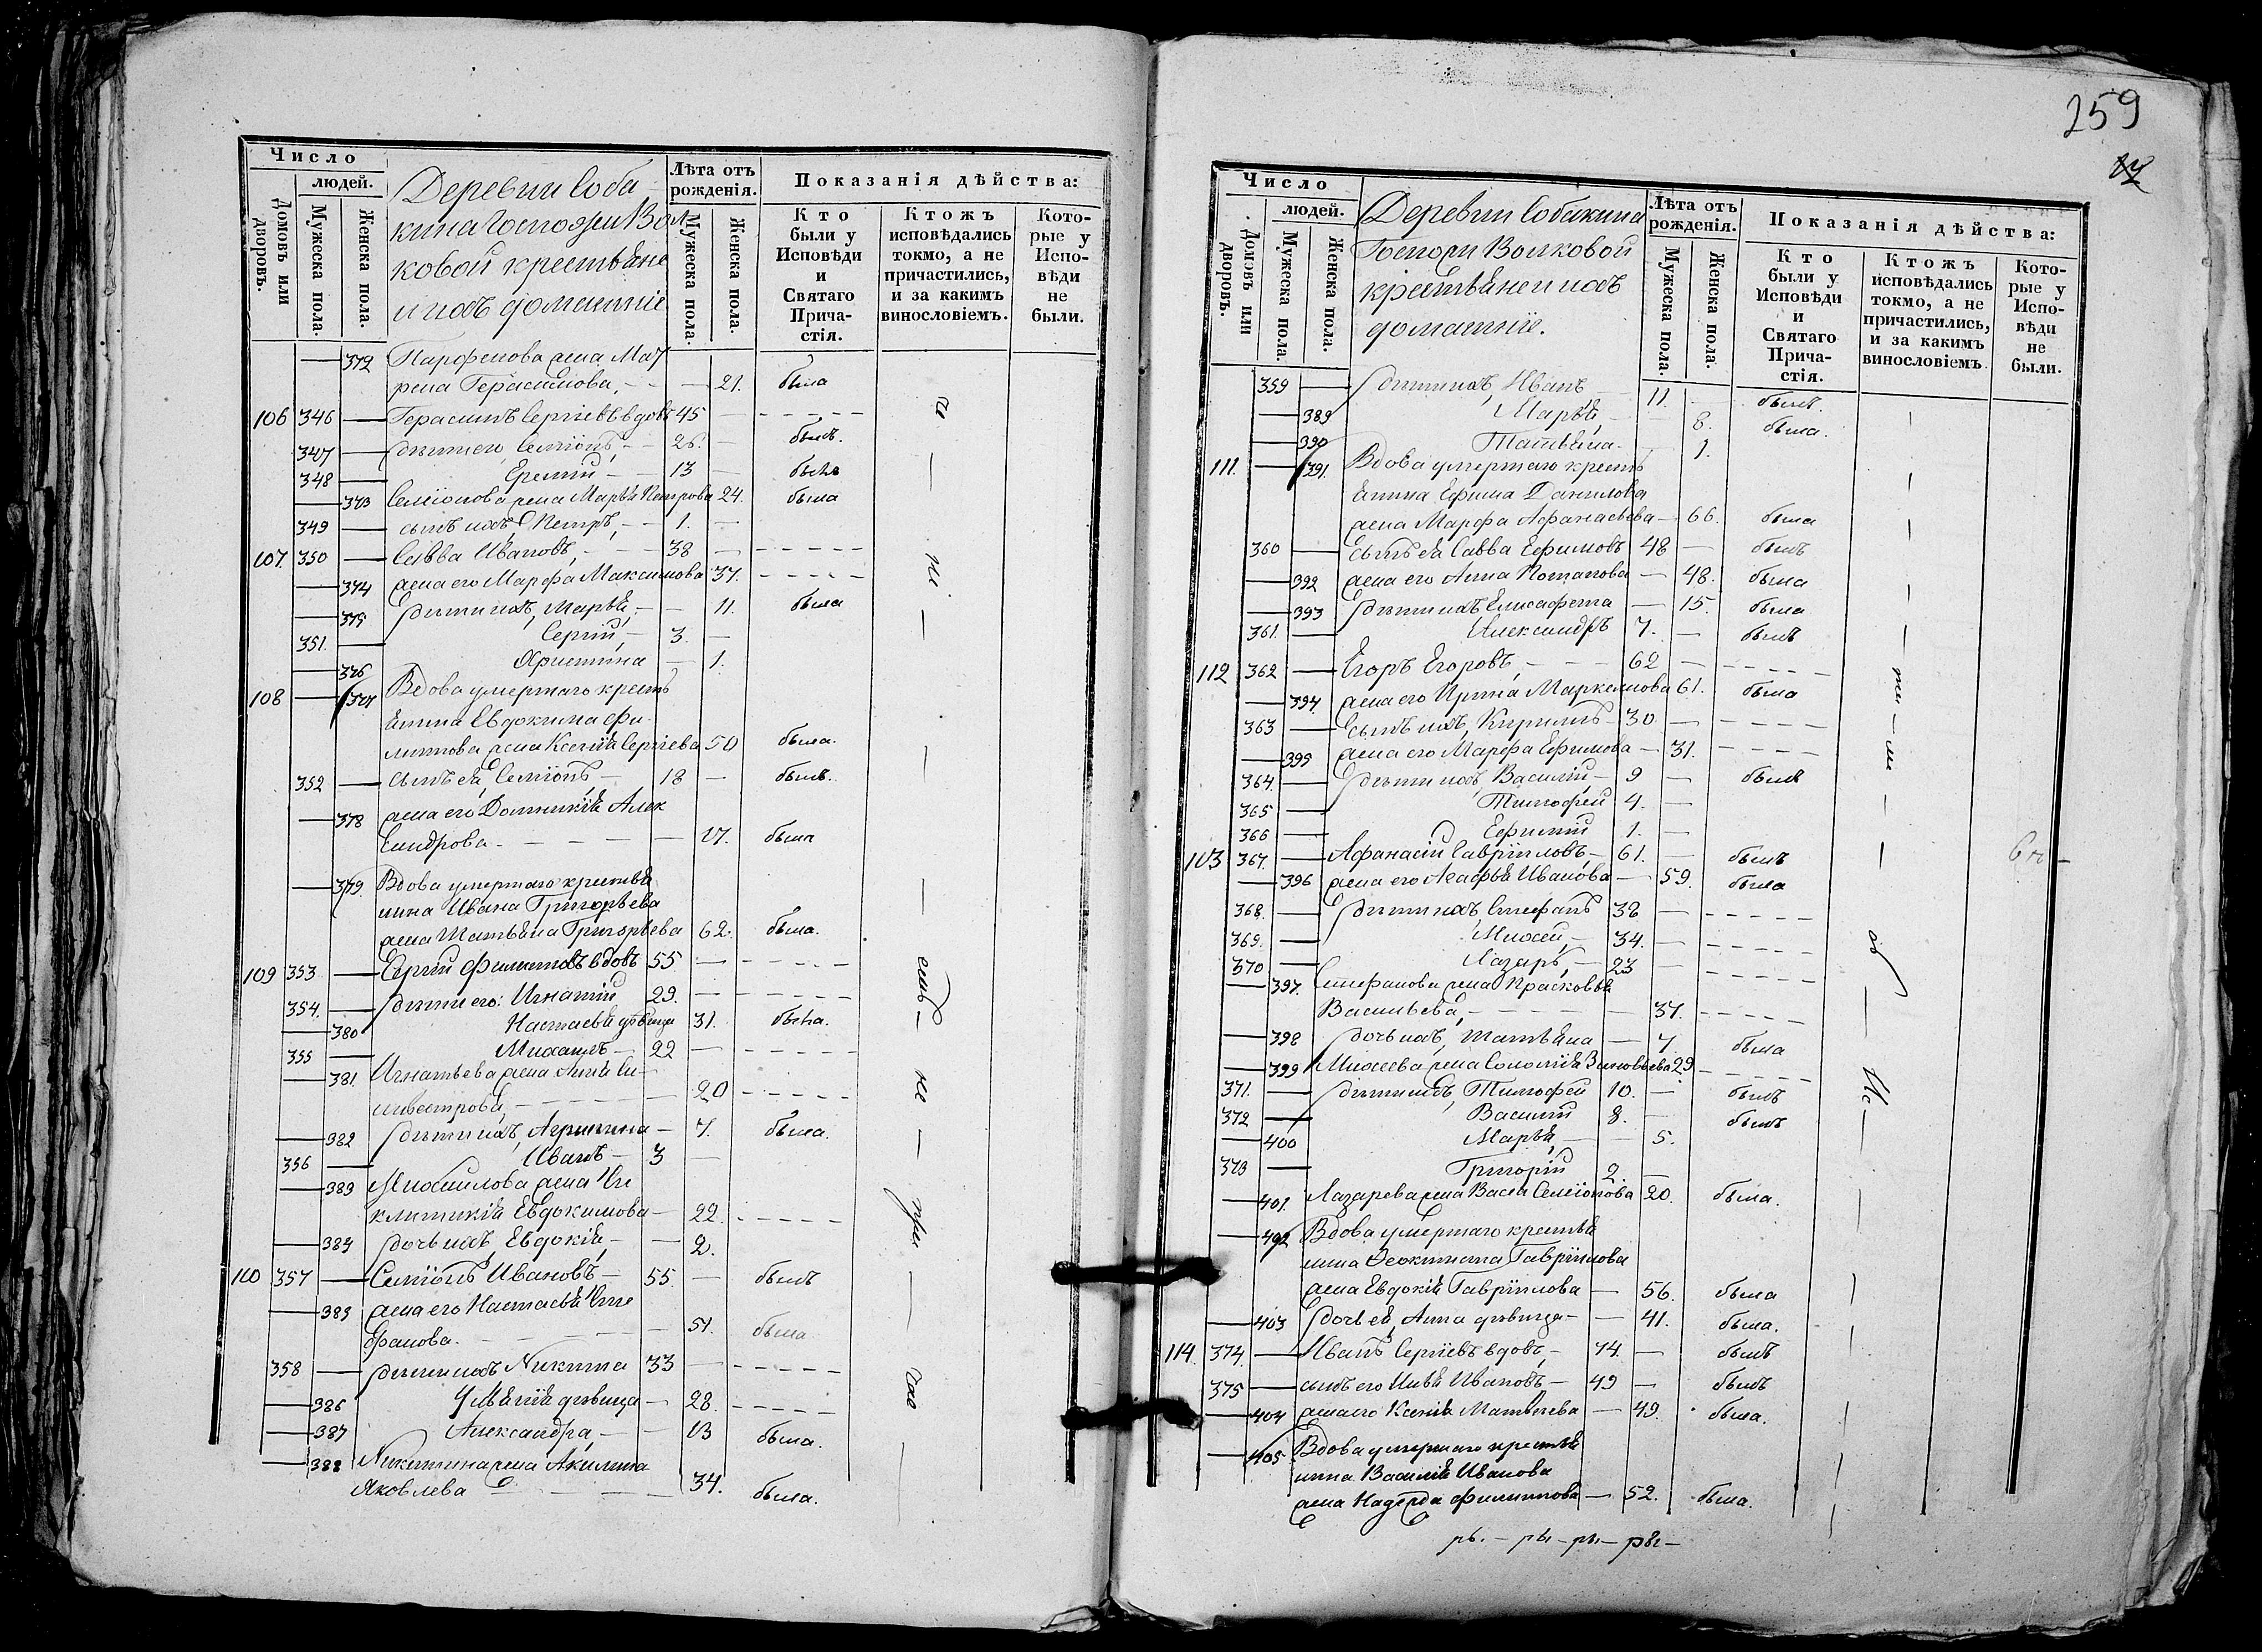 Число
людей.
Домовъ или дворовъ.
Мужеска пола.
Женска пола.
Деревни Соба-
кина Госпожи Вол-
ковой крестьяне
и ихъ домашніе
Лѣта отъ рожденія.
Мужеска пола.
Женска пола.
Показанія дѣйства:
Кто были у Исповѣди и Святаго Прича-стія.
Ктожъ исповѣдались токмо, а не причастились, и за какимъ винословіемъ.
Кото-рые у Испо-вѣди не были.
— 372 Парфенова жена Мат
рена Герасимова, — 21. была
106 346 — Герасимъ Сергіевъ вдовъ 45 —
347 — дѣти его, Семіонъ, — 26. — былъ.
348 — Еремій — 13 — былъ
— 373 Семіонова жена Марья Петрова 24. была
349 — сынъ ихъ Петръ, — 1. —
107. 350 — Савва Ивановъ, — 38 —
— 374 жена его Марфа Максимова 37.
— 375 дѣти ихъ, Марья, — 11. была
351. — Сергій, — 3. —
— 376 Христина — 1.
108 — 377 Вдова умершаго кресть
янина Евдокима Фи-
липпова жена Ксенія Сергіева 50 была.
352 — сынъ ея, Семіонъ, — 18 — былъ.
— 378 жена его Домникія Алек
сандрова — 17. была
— 379 Вдова умершаго крестья
нина Ивана Григорьева
жена Татьяна Григорьева 62. была.
109 353 — Сергій Филиповъ вдовъ 55 —
354. — дѣти его: Игнатій 29. —
— 380 Настасья дѣвица 31. была.
355 — Михаилъ — 22 —
— 381 Игнатьева жена Анна Си-
livестрова, — 20
— 382 дѣти ихъ, Агрипина — 7. была.
356 — Иванъ — 3 —
— 383 Михаилова жена
Евдокимова — 22.
— 384 дочь ихъ, Евдокія, — 2.
110 357 — Семіонъ Ивановъ — 55. — былъ
— 385 жена его Настасья Сте
фанова. — 51. была
358 — дѣти ихъ Никита 33 —
— 386 дѣвица — 28.
— 387 Александра, — 13 была.
— 388 Никитина жена Акилина
Яковлева — 34. была.
259
Число
людей.
Домовъ или дворовъ.
Мужеска пола.
Женска пола.
Деревни Собакина
Госпожи Волковой
крестьяне и ихъ
домашніе.
Лѣта отъ рожденія.
Мужеска пола.
Женска пола.
Показанія дѣйства:
Кто были у Исповѣди и Святаго Прича-стія.
Ктожъ исповѣдались токмо, а не причастились, и за какимъ винословіемъ.
Кото-рые у Испо-вѣди не были.
359 — дѣти ихъ, Иванъ 11. — былъ.
— 389 Марья, — 8. была.
— 390 Татьяна. — 1.
111. — 391. Вдова умершаго кресть
янина Ефима Данилова
жена Марфа Афанасьева — 66. была
360 — сынъ ея Савва Ефимовъ 48 — былъ
— 392 жена его Анна Потапова — 48. была
— 393 дѣти ихъ Елисафета — 15. была
361. — Александръ 7. — былъ
112 362 — Егоръ Егоровъ, — 62 —
— 394. жена его Ирина Маркелова 61. была
363 — сынъ ихъ, Кирилъ — 30 —
— 395 жена его Марфа Ефимова — 31.
364. — дѣти ихъ, Василій — 9 — былъ
365 — Тимофей 4. —
366 — Ефимій 1. —
103 367. — Афанасій Гавріиловъ, — 61. — былъ
— 396 жена его Агафья Иванова — 59. была
368. — дѣти ихъ, Стефанъ 38 —
369. — Михей, — 34. —
370 — Лазарь, — 23 —
— 397. Стефанова жена Прасковья
Васильева, — 37.
— 398 дочь ихъ, Татьяна — 7 была
— 399 Михеева жена Соломія Зиновьева 29
371. — дѣти ихъ, Тимофей 10. — былъ
372 — Василій 8. — былъ
— 400 Марья, — 5.
373 — Григорій 2. —
— 401. Лазарева жена Васса Семіонова 20. была.
— 402 Вдова умершаго крестья
нина Феоктиста Гавріилова
жена Евдокія Гавріилова — 56. была
— 403 дочь ея, Анна дѣвица — 41. была.
114. 374. — Иванъ Сергіевъ вдовъ, — 74. — былъ
375 — сынъ его Ивановъ — 49 — былъ
— 404 жена его Ксенія Матвѣева — 49. была.
— 405 Вдова умершаго крестья
нина Василія Иванова
жена Надежда Филиппова — 52. была.